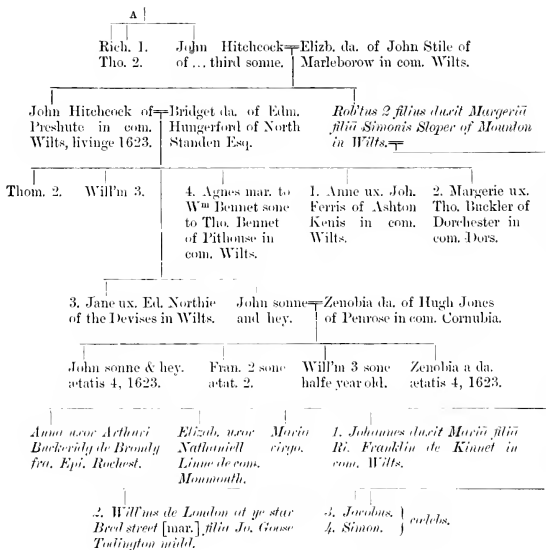 A
Rich. 1.
Tho. 2.
John Hitchcock
of ... third sonne.
Elizb. da. of John Stile of
Marleborow in com. Wilts.
John Hitchcock of
Preshute in com.
Wilts, livinge 1623.
Bridget da. of Edm.
Hungerford of North
Standen Esq.
Rob'tus 2 filius duxit Margeriā
filiā Simonis Sloper of Mounton
in Wilts.
Thom. 2.
Will'm 3.
4. Agnes mar. to
Wm Bennet sone
to Tho. Bennet
of Pithouse in
com. Wilts.
1. Anne ux. Joh.
Ferris of Ashton
Kenis in com.
Wilts.
2. Margerie ux.
Tho. Buckler of
Dorchester in
com. Dors.
3. Jane ux. Ed. Northie
of the Devises in Wilts.
John sonne
and hey.
Zenobia da. of Hugh Jones
of Penrose in com. Cornubia.
John sonne & hey.
ætatis 4, 1623.
Fran. 2 sone
ætat. 2.
Will'm 3 sone
halfe year old.
Zenobia a da.
ætatis 4, 1623.
Anna uxor Arthuri
Buckeridg de Bromly
fra. Epi. Rochest.
Elizab. uxor
Nathaniell
Linne de com.
Monmouth.
Maria
virgo.
1. Johannes duxit Mariā filiā
Ri. Franklin de Kinnet in
com. Wilts.
2. Will'ms de London at ye star
Bred street [mar.] filia Jo. Goose
Todington midd.
3. Jacobus.
4. Simon.
cœlebs.